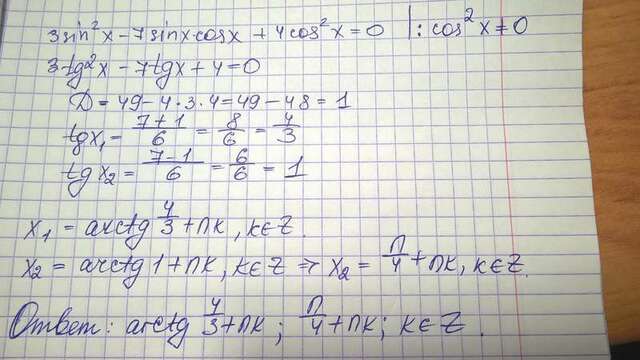 3sin²x - 7sinx·cosx + 4cos²x = 0 |: cos²x ≠ 0
3tg²x - 7tgx + 4 = 0
D = 49 - 4·3·4 = 49 - 48 = 1
tgx₁ = (7+1)/6 = 8/6 = 4/3
tgx₂ = (7-1)/6 = 6/6 = 1
x₁ = arctg 4/3 + πk, k∈Z.
x₂ = arctg 1 + πk, k∈Z ⇒ x₂ = π/4 + πk, k∈Z.
Ответ: arctg 4/3 + πk; π/4 + πk; k∈Z.